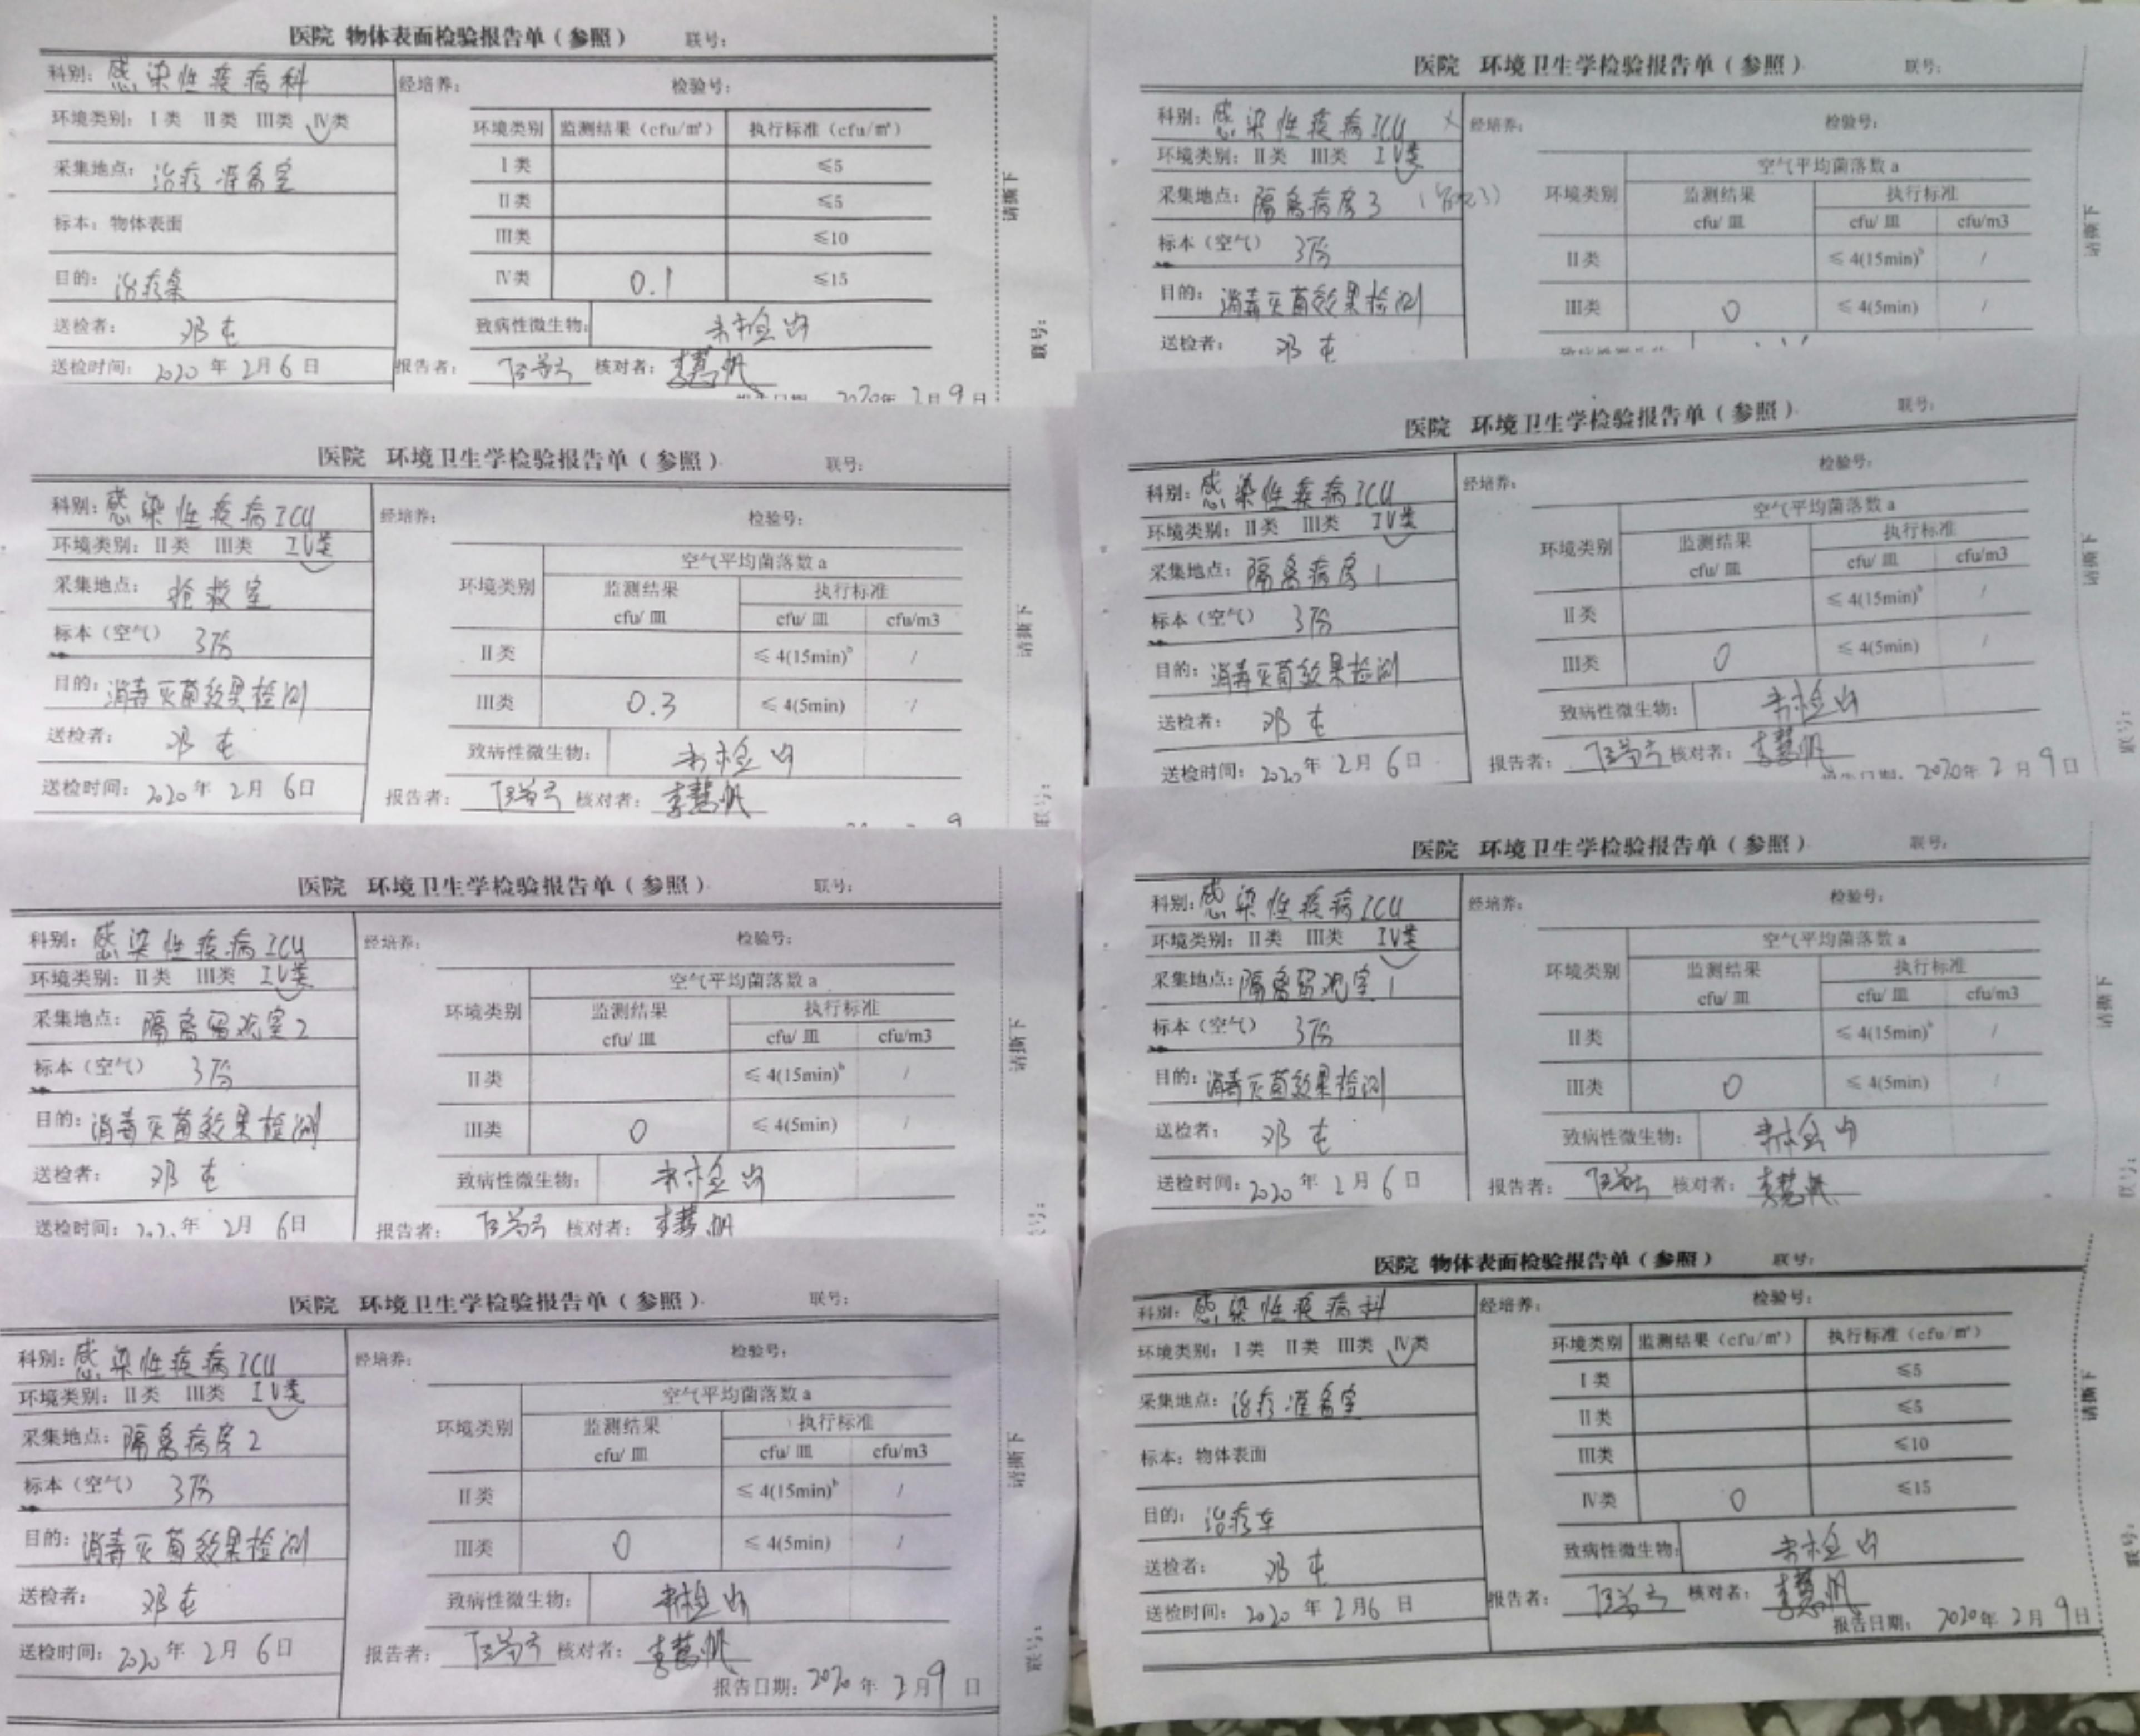 医院 物体表面检验报告单（参照） 联号：
科别：感染性疾病科 经培养： 检验号：
环境类别：I类 II类 III类 IV类
环境类别 监测结果（cfu/㎡） 执行标准（cfu/㎡）
采集地点：治疗准备室
I类 ≤5
II类 ≤5
标本：物体表面
III类 ≤10
目的：治疗桌
IV类 0.1 ≤15
送检者：邓屯
致病性微生物：未检出
送检时间：2020年2月6日 报告者： 核对者：李慧帆
2020年2月9日
请撕下
联号：
医院 环境卫生学检验报告单（参照） 联号：
科别：感染性疾病ICU 经培养： 检验号：
环境类别：II类 III类 IV类
空气平均菌落数a
采集地点：抢救室
环境类别 监测结果 执行标准
cfu/皿 cfu/皿 cfu/m3
标本（空气） 3份
II类 ≤4(15min)b /
目的：消毒灭菌效果检测
III类 0.3 ≤4(5min) /
送检者：邓屯
致病性微生物：未检出
送检时间：2020年2月6日 报告者： 核对者：李慧帆
9
请撕下
联号：
医院 环境卫生学检验报告单（参照） 联号：
科别：感染性疾病ICU 经培养： 检验号：
环境类别：II类 III类 IV类
空气平均菌落数a
采集地点：隔离留观室2
环境类别 监测结果 执行标准
cfu/皿 cfu/皿 cfu/m3
标本（空气） 3份
II类 ≤4(15min)b /
目的：消毒灭菌效果检测
III类 0 ≤4(5min) /
送检者：邓屯
致病性微生物：未检出
送检时间：202.年2月6日 报告者： 核对者：李慧帆
请撕下
医院 环境卫生学检验报告单（参照） 联号：
科别：感染性疾病ICU 经培养： 检验号：
环境类别：II类 III类 IV类
空气平均菌落数a
采集地点：隔离病房2
环境类别 监测结果 执行标准
cfu/皿 cfu/皿 cfu/m3
标本（空气） 3份
II类 ≤4(15min)b /
目的：消毒灭菌效果检测
III类 0 ≤4(5min) /
送检者：邓屯
致病性微生物：未检出
送检时间：2020年2月6日 报告者： 核对者：李慧帆
报告日期：2020年2月9日
请撕下
联号：
医院 环境卫生学检验报告单（参照） 联号：
科别：感染性疾病ICU 经培养： 检验号：
环境类别：II类 III类 IV类
空气平均菌落数a
采集地点：隔离病房3
环境类别 监测结果 执行标准
cfu/皿 cfu/皿 cfu/m3
标本（空气） 3份
II类 ≤4(15min)b /
目的：消毒灭菌效果检测
III类 0 ≤4(5min) /
送检者：邓屯
请撕下
医院 环境卫生学检验报告单（参照） 联号：
科别：感染性疾病ICU 经培养： 检验号：
环境类别：II类 III类 IV类
空气平均菌落数a
采集地点：隔离病房1
环境类别 监测结果 执行标准
cfu/皿 cfu/皿 cfu/m3
标本（空气） 3份
II类 ≤4(15min)b /
目的：消毒灭菌效果检测
III类 0 ≤4(5min) /
送检者：邓屯
致病性微生物：未检出
送检时间：2020年2月6日 报告者： 核对者：李慧帆
2020年2月9日
请撕下
联号：
医院 环境卫生学检验报告单（参照） 联号：
科别：感染性疾病ICU 经培养： 检验号：
环境类别：II类 III类 IV类
空气平均菌落数a
采集地点：隔离留观室1
环境类别 监测结果 执行标准
cfu/皿 cfu/皿 cfu/m3
标本（空气） 3份
II类 ≤4(15min)b /
目的：消毒灭菌效果检测
III类 0 ≤4(5min) /
送检者：邓屯
致病性微生物：未检出
送检时间：2020年2月6日 报告者： 核对者：李慧帆
请撕下
联号：
医院 物体表面检验报告单（参照） 联号：
科别：感染性疾病科 经培养： 检验号：
环境类别：I类 II类 III类 IV类
环境类别 监测结果（cfu/㎡） 执行标准（cfu/㎡）
采集地点：治疗准备室
I类 ≤5
II类 ≤5
标本：物体表面
III类 ≤10
目的：治疗车
IV类 0 ≤15
送检者：邓屯
致病性微生物：未检出
送检时间：2020年2月6日 报告者： 核对者：李慧帆
报告日期：2020年2月9日
请撕下
联号：